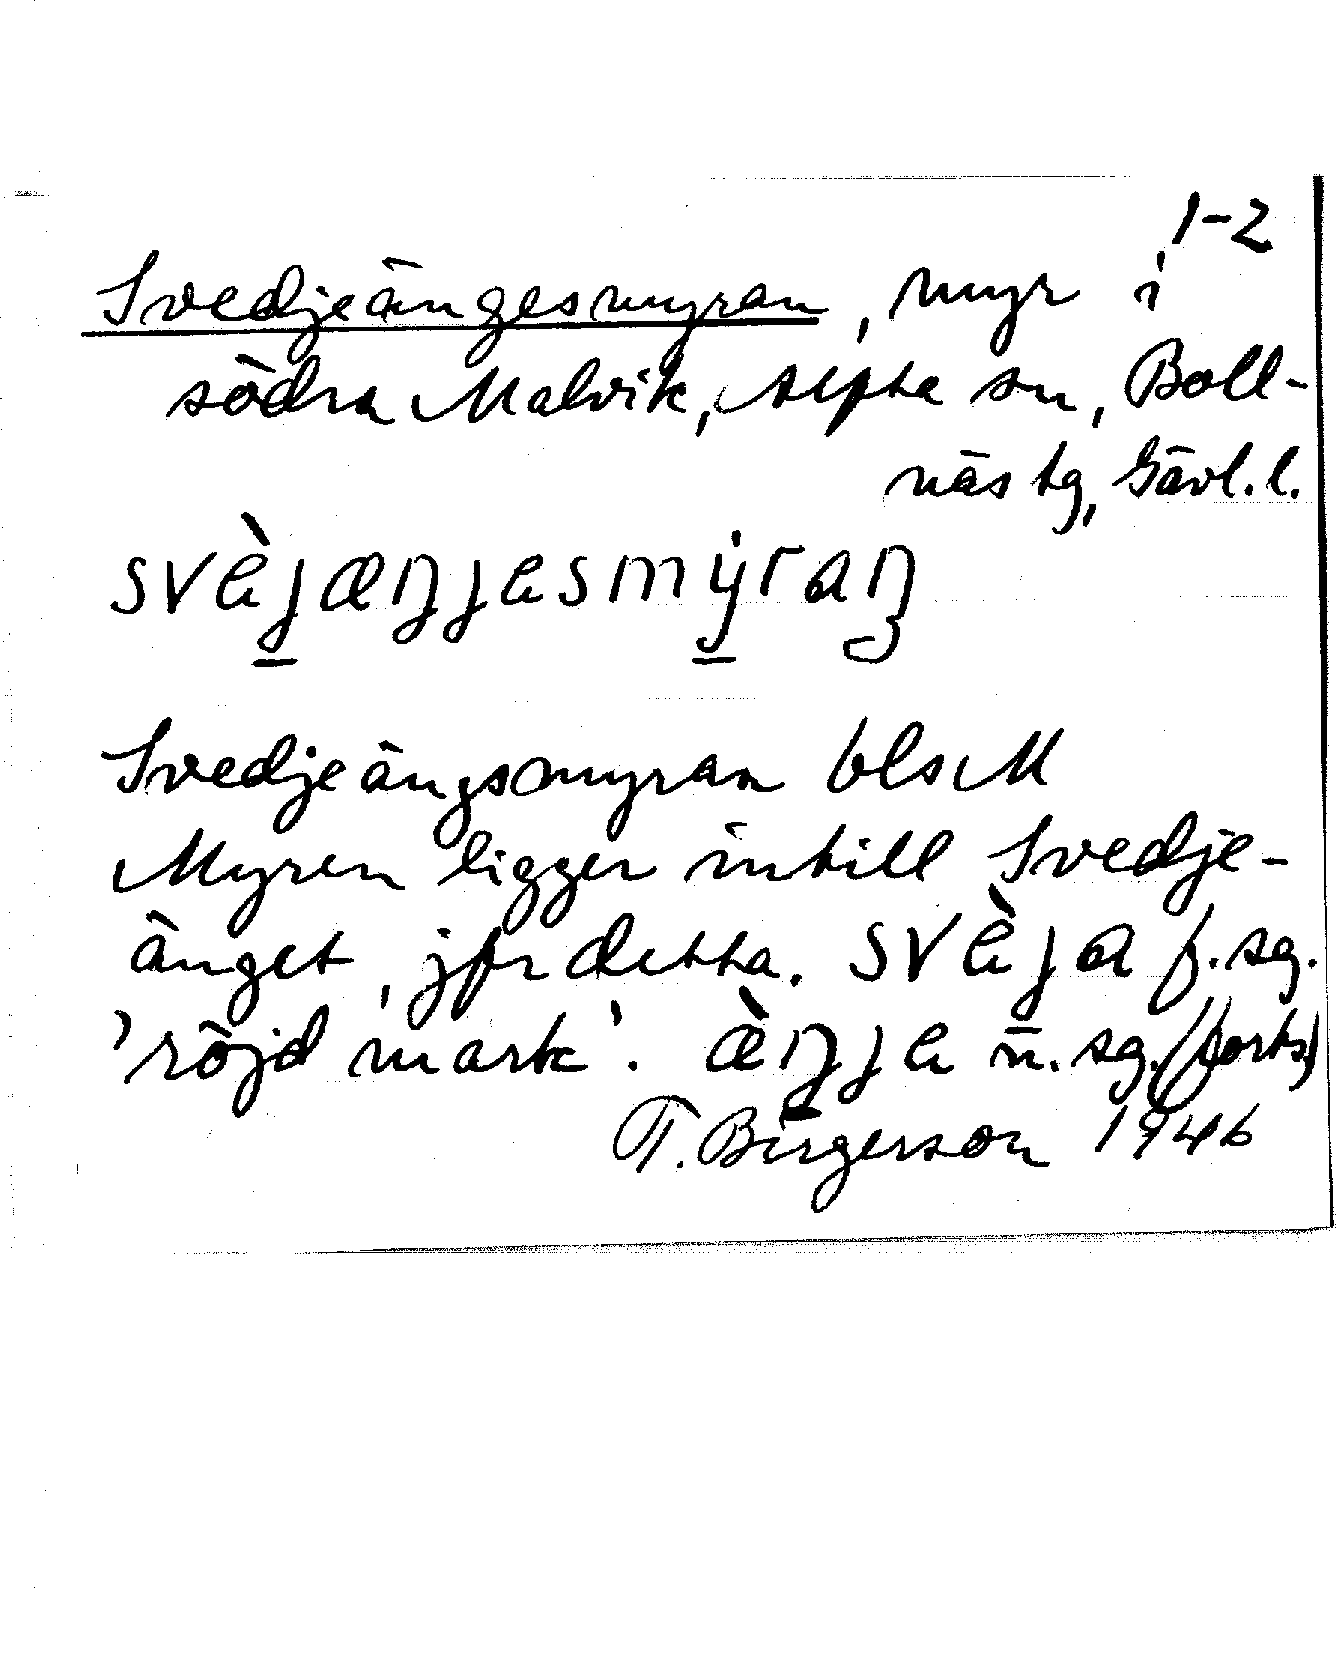 1-2
Svedjeängesmyran, myr i
södra Malvik, Alfta sn, Boll-
näs tg, Gävl. l.
svèjæŋjesmýraŋ
Svedjeängsmyran bls M
Myren ligger intill Svedje-
änget, jfr detta. svèja f. sg.
'röjd mark'. æ̀ŋje n. sg. (forts)
T. Birgerson 1946